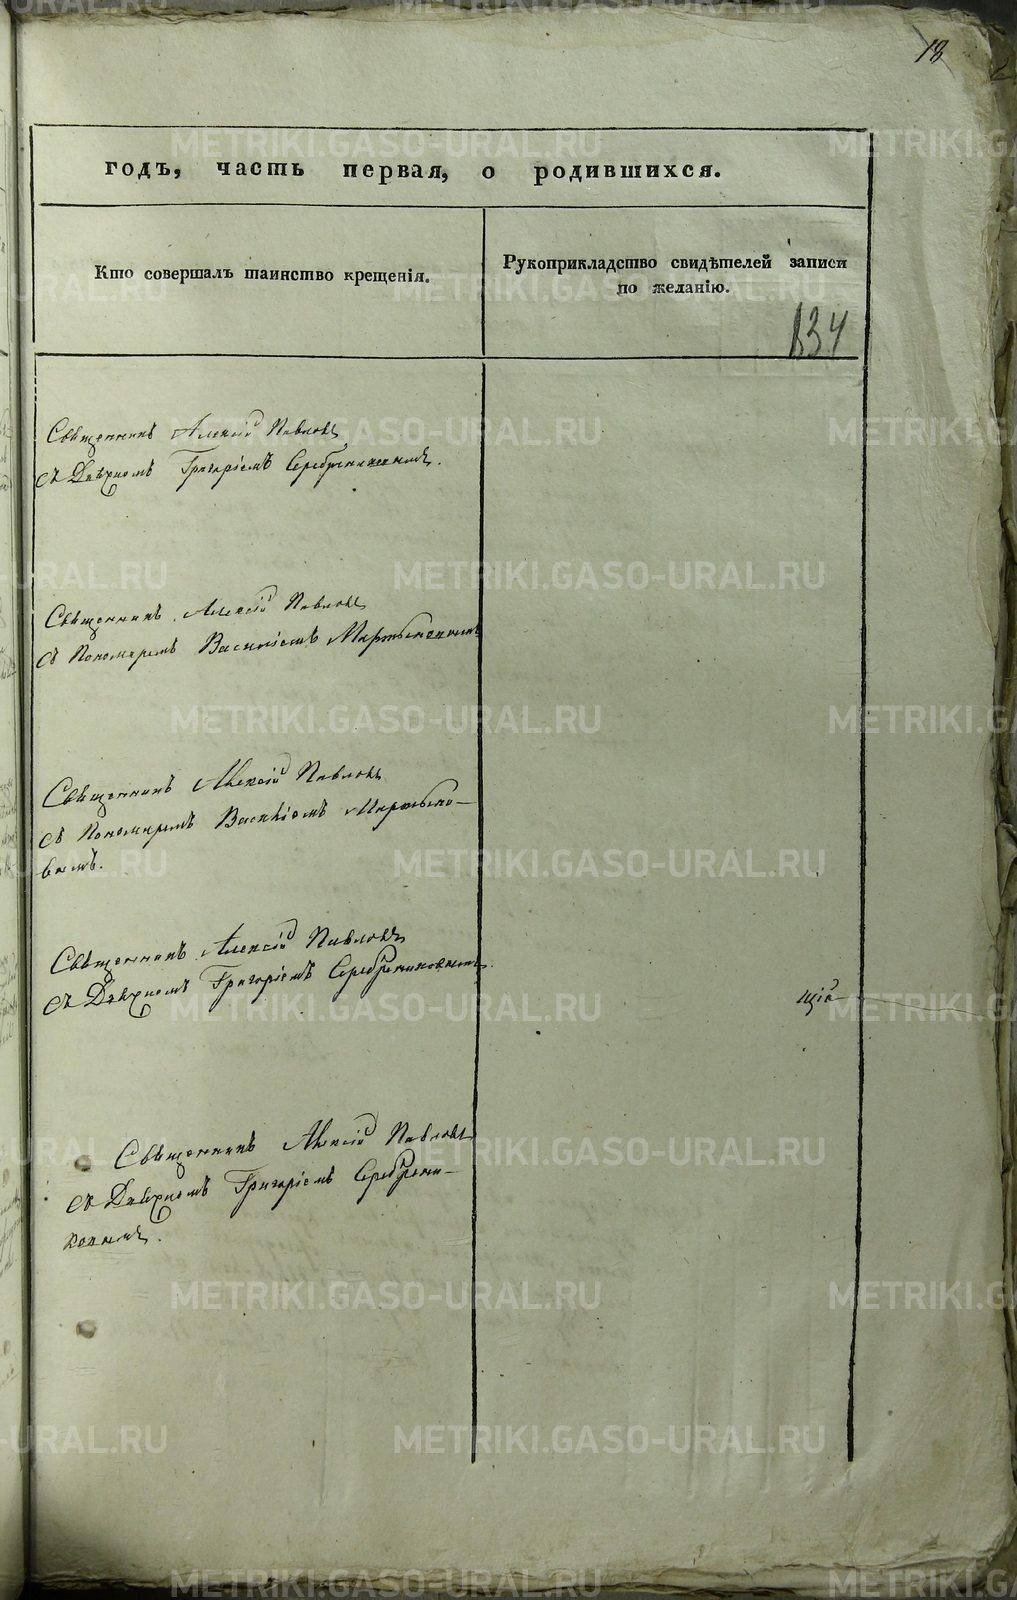 18
годъ, часть первая, о родившихся.
Кто совершалъ таинство крещенія.
Рукоприкладство свидѣтелей записи
по желанію.
134
Священникъ Алексій Павловъ
съ Дьячкомъ Григоріемъ Серебрениковымъ.
Священникъ Алексій Павловъ
съ Пономаремъ Василіемъ Мартыновымъ
Священникъ Алексій Павловъ
съ Пономаремъ Василіемъ Мартыно-
вымъ.
Священникъ Алексій Павловъ
съ Дьячкомъ Григоріемъ Серебрениковымъ.
щій
Священникъ Алексій Павловъ
съ Дьячкомъ Григоріемъ Серебрени-
ковымъ.
METRIKI.GASO-URAL.RU